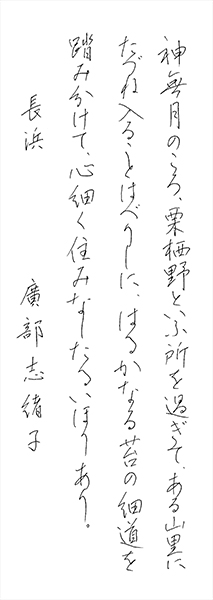 神無月のころ、栗栖野といふ所を過ぎて、ある山里に
たづね入ることはべりしに、はるかなる苔の細道を
踏みわけて、心細く住みなしたるいほりあり。
長浜　廣部志緒子